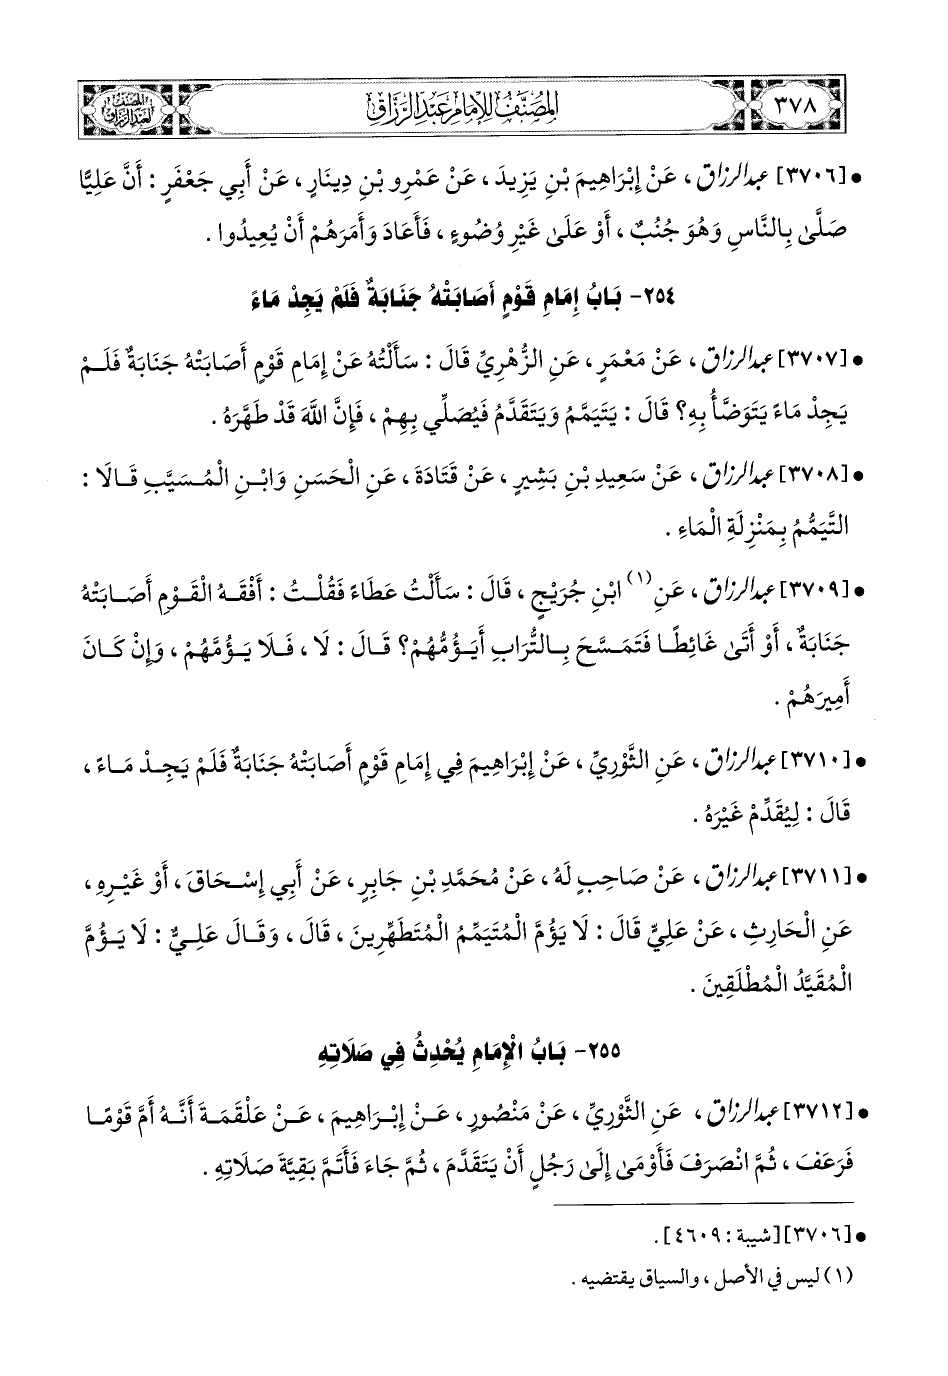 ٣٧٨
المصنف للإمام عبد الرزاق
المصنف لعبد الرزاق
• [٣٧٠٦] عبد الرزاق، عَنْ إِبْرَاهِيمَ بْنِ يَزِيدَ، عَنْ عَمْرِو بْنِ دِينَارٍ، عَنْ أَبِي جَعْفَرٍ: أَنَّ عَلِيًّا
صَلَّى بِالنَّاسِ وَهُوَ جُنُبٌ، أَوْ عَلَى غَيْرِ وُضُوءٍ، فَأَعَادَ وَأَمَرَهُمْ أَنْ يُعِيدُوا.
٢٥٤- بَابُ إِمَامِ قَوْمٍ أَصَابَتْهُ جَنَابَةٌ فَلَمْ يَجِدْ مَاءً
• [٣٧٠٧] عبد الرزاق، عَنْ مَعْمَرٍ، عَنِ الزُّهْرِيِّ قَالَ: سَأَلْتُهُ عَنْ إِمَامِ قَوْمٍ أَصَابَتْهُ جَنَابَةٌ فَلَمْ
يَجِدْ مَاءً يَتَوَضَّأُ بِهِ؟ قَالَ: يَتَيَمَّمُ وَيَتَقَدَّمُ فَيُصَلِّي بِهِمْ، فَإِنَّ اللَّهَ قَدْ طَهَّرَهُ.
• [٣٧٠٨] عبد الرزاق، عَنْ سَعِيدِ بْنِ بَشِيرٍ، عَنْ قَتَادَةَ، عَنِ الْحَسَنِ وَابْنِ الْمُسَيَّبِ قَالَا:
التَّيَمُّمُ بِمَنْزِلَةِ الْمَاءِ.
• [٣٧٠٩] عبد الرزاق، عَنِ (١) ابْنِ جُرَيْجٍ، قَالَ: سَأَلْتُ عَطَاءً فَقُلْتُ: أَفْقَهُ الْقَوْمِ أَصَابَتْهُ
جَنَابَةٌ، أَوْ أَتَى غَائِطًا فَتَمَسَّحَ بِالتُّرَابِ أَيَؤُمُّهُمْ؟ قَالَ: لَا، فَلَا يَؤُمَّهُمْ، وَإِنْ كَانَ
أَمِيرَهُمْ.
• [٣٧١٠] عبد الرزاق، عَنِ الثَّوْرِيِّ، عَنْ إِبْرَاهِيمَ فِي إِمَامِ قَوْمٍ أَصَابَتْهُ جَنَابَةٌ فَلَمْ يَجِدْ مَاءً،
قَالَ: لِيُقَدِّمْ غَيْرَهُ.
• [٣٧١١] عبد الرزاق، عَنْ صَاحِبٍ لَهُ، عَنْ مُحَمَّدِ بْنِ جَابِرٍ، عَنْ أَبِي إِسْحَاقَ، أَوْ غَيْرِهِ،
عَنِ الْحَارِثِ، عَنْ عَلِيٍّ قَالَ: لَا يَؤُمَّ الْمُتَيَمِّمُ الْمُتَطَهِّرِينَ، قَالَ، وَقَالَ عَلِيٌّ: لَا يَؤُمَّ
الْمُقَيَّدُ الْمُطْلَقِينَ.
٢٥٥- بَابُ الْإِمَامِ يُحْدِثُ فِي صَلَاتِهِ
• [٣٧١٢] عبد الرزاق، عَنِ الثَّوْرِيِّ، عَنْ مَنْصُورٍ، عَنْ إِبْرَاهِيمَ، عَنْ عَلْقَمَةَ أَنَّهُ أَمَّ قَوْمًا
فَرَعَفَ، ثُمَّ انْصَرَفَ فَأَوْمَى إِلَى رَجُلٍ أَنْ يَتَقَدَّمَ، ثُمَّ جَاءَ فَأَتَمَّ بَقِيَّةَ صَلَاتِهِ.
• [٣٧٠٦] [شيبة: ٤٦٠٩].
(١) ليس في الأصل، والسياق يقتضيه.